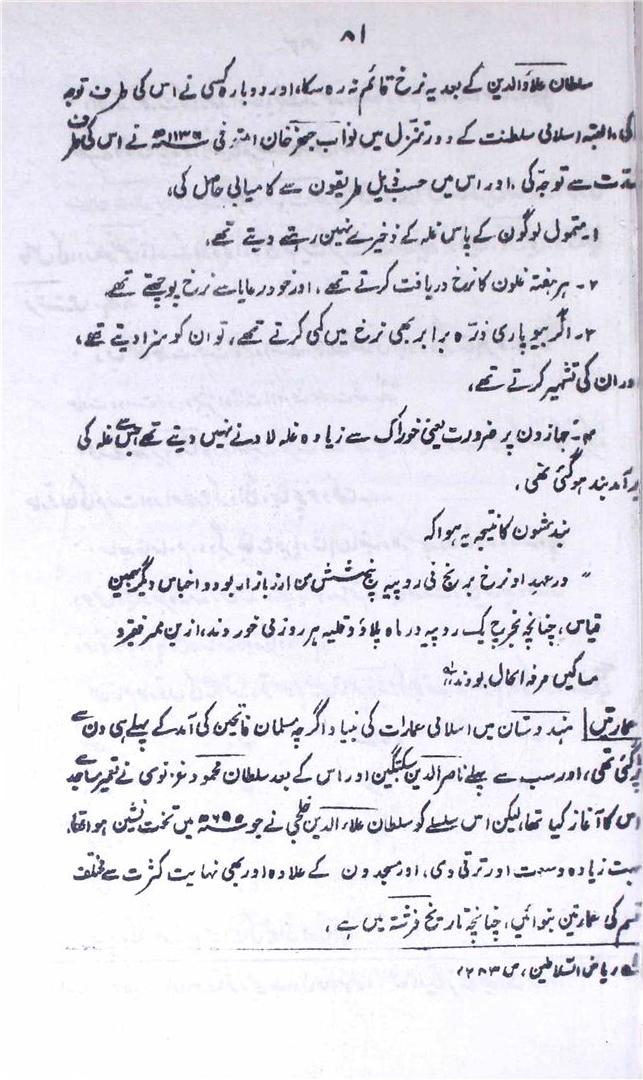 ۸۱
سلطان علاؤالدین کے بعد یہ نرخ قائم نہ رہ سکا، اور دوبارہ کسی نے اس کی طرف توجہ
کی، البتہ اسلامی سلطنت کے دور تنزل میں نواب جعفر خان المتوفی سنہ ۱۱۳۶ھ نے اس کی طرف
شدت سے توجہ کی، اور اس میں حسب ذیل طریقون سے کامیابی حاصل کی،
۱۔ متمول لوگون کے پاس غلہ کے ذخیرے نہین رہنے دیتے تھے،
۲۔ ہر ہفتہ غلون کا نرخ دریافت کرتے تھے، اور خود رعایا سے نرخ پوچھتے تھے
۳۔ اگر بیوپاری ذرّہ برابر بھی نرخ میں کمی کرتے تھے، تو ان کو سزا دیتے تھے،
اور ان کی تشہیر کرتے تھے،
۴۔ جہازون پر ضرورت یعنی خوراک سے زیادہ غلہ لادنے نہیں دیتے تھے جس سے غلہ کی
برآمد بند ہو گئی تھی،
بندشون کا نتیجہ یہ ہوا کہ
" در عہد او نرخ برنج فی روپیہ پنج شش من از بازار بود و اجناس دیگر بہمین
قیاس، چنانچہ بخرج یک روپیہ در ماہ پلاؤ و قلیہ ہر روز می خوردند، ازین ممر فقرو
مساکین مرفہ الحال بودند"
عمارتین| ہندوستان میں اسلامی عمارات کی بنیاد اگرچہ مسلمان فاتحین کی آمد کے پہلے ہی دن سے
پڑ گئی تھی، اور سب سے پہلے ناصر الدین سبکتگین اور اس کے بعد سلطان محمود غزنوی نے تعمیر مساجد سے
اس کا آغاز کیا تھا، لیکن اس سلسلے کو سلطان علاء الدین خلجی نے جو سنہ ۶۹۵ھ میں تخت نشین ہوا تھا،
بہت زیادہ وسعت اور ترقی دی، اور مسجدون کے علاوہ اور بھی نہایت کثرت سے مختلف
قسم کی عمارتین بنوائیں، چنانچہ تاریخ فرشتہ میں ہے،
لہ ریاض السلاطین، ص ۲۸۳،